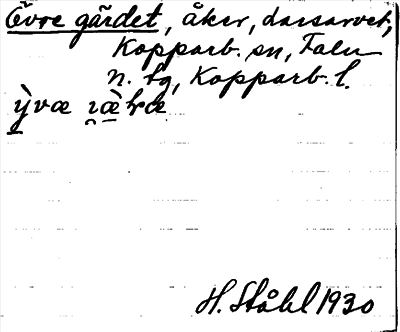 Övre gärdet, åker, Darsarvet,
Kopparb. sn, Falu
n. tg, Kopparb. l.
H. Ståhl 1930